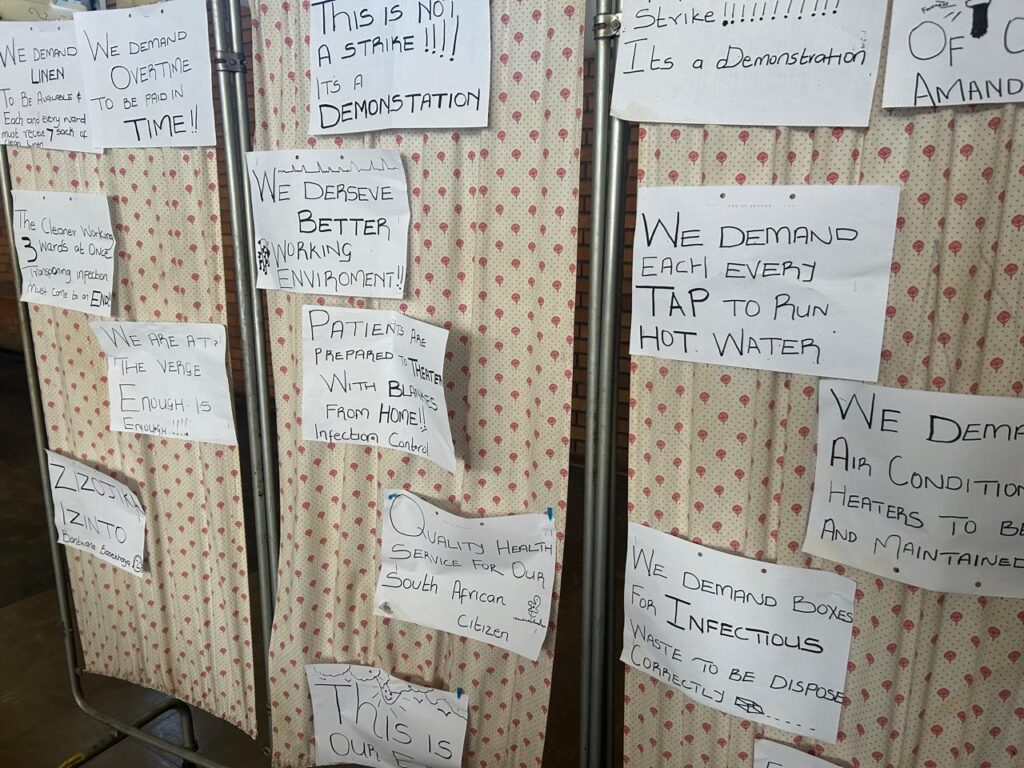 WE DEMAND
LINEN
TO BE AVAILABLE &
Each and every ward
must receive 7 sack of
clean linen
WE DEMAND
OVERTIME
TO BE PAID IN
TIME!!
The Cleaner Working
3 Wards at Once
Transporing infection
Must come to an END!
WE ARE AT
THE VERGE
ENOUGH IS
ENOUGH!!!!
ZIZOJIKA
IZINTO
Bantwana Basekhaya
THIS IS NOT
A STRIKE!!!!
IT'S A
DEMONSTATION
WE DERSEVE
BETTER
WORKING
ENVIROMENT!!
PATIENTS ARE
PREPARED TO THEATER
WITH BLANKES
FROM HOME!!
Infection Control
QUALITY HEALTH
SERVICE FOR OUR
South African
Citizen
THIS IS
OUR
Strike!!!!!!!!!!!
Its a Demonstration
OF
AMAND
WE DEMAND
EACH EVERY
TAP TO RUN
HOT WATER
WE DEMA
AIR CONDITION
HEATERS TO BE
AND MAINTAINED
WE DEMAND BOXES
FOR INFECTIOUS
WASTE TO BE DISPOSE
CORRECTLY